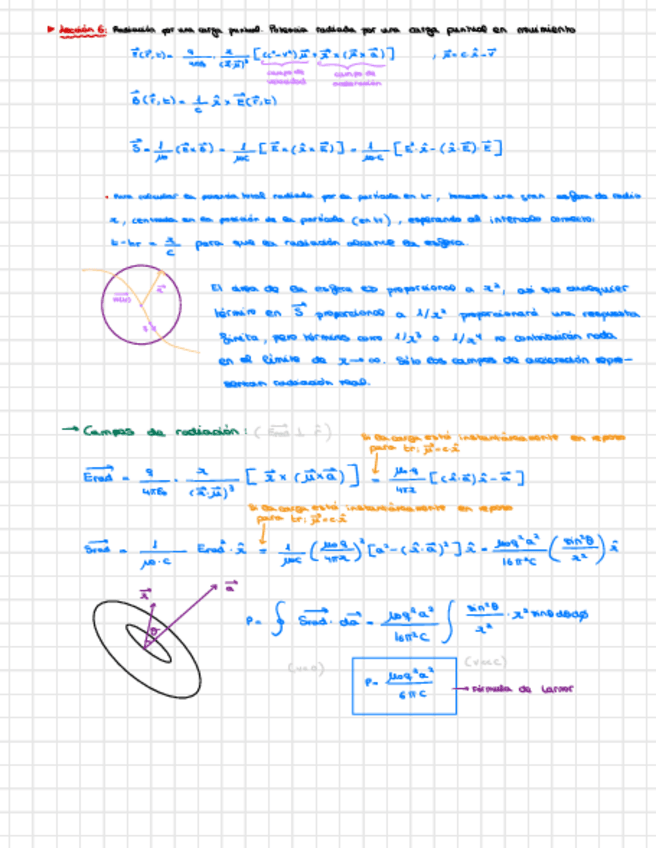 ▶ Lección 6: Radiación por una carga puntual. Potencia radiada por una carga puntual en movimiento
E⃗(r⃗,t) = q/4πε₀ · r/(r⃗·μ⃗)³ [(c²-v²)μ⃗ + r⃗×(μ⃗×a⃗)] , μ⃗ = c·r̂ - v⃗
campo de velocidad campo de aceleración
B⃗(r⃗,t) = 1/c r̂ × E⃗(r⃗,t)
S⃗ = 1/μ₀ (E⃗×B⃗) = 1/μ₀c [E⃗×(r̂×E⃗)] = 1/μ₀·c [E²·r̂ - (r̂·E⃗)·E⃗]
• Para calcular la potencia total radiada por la partícula en tr, tomamos una gran esfera de radio
r, centrada en la posición de la partícula (en tr), esperando al intervalo correcto:
t-tr = r/c para que la radiación alcance la esfera.
El área de la esfera es proporcional a r², así que cualquier
término en S⃗ proporcional a 1/r² proporcionará una respuesta
finita, pero términos como 1/r³ o 1/r⁴ no contribuirán nada
en el límite de r→∞. Sólo los campos de aceleración repre-
sentan radiación real.
→ Campos de radiación:
Si la carga está instantáneamente en reposo
para tr: μ⃗=c·r̂
E⃗rad = q/4πε₀ · r/(r⃗·μ⃗)³ [r⃗×(μ⃗×a⃗)] = μ₀q/4πr [(r̂·a⃗)r̂ - a⃗]
Si la carga está instantáneamente en reposo
para tr: μ⃗=c·r̂
S⃗rad = 1/μ₀·c E²rad·r̂ = 1/μ₀c (μ₀q/4πr)² [a²-(r̂·a⃗)²] r̂ = μ₀q²a²/16π²c (sin²θ/r²) r̂
r⃗ a⃗
θ
P = ∮ S⃗rad · da⃗ = μ₀q²a²/16π²c ∫ sin²θ/r² · r² sinθ dθ dφ
(v=0) (v≪c)
P = μ₀q²a²/6πc → Fórmula de Larmor